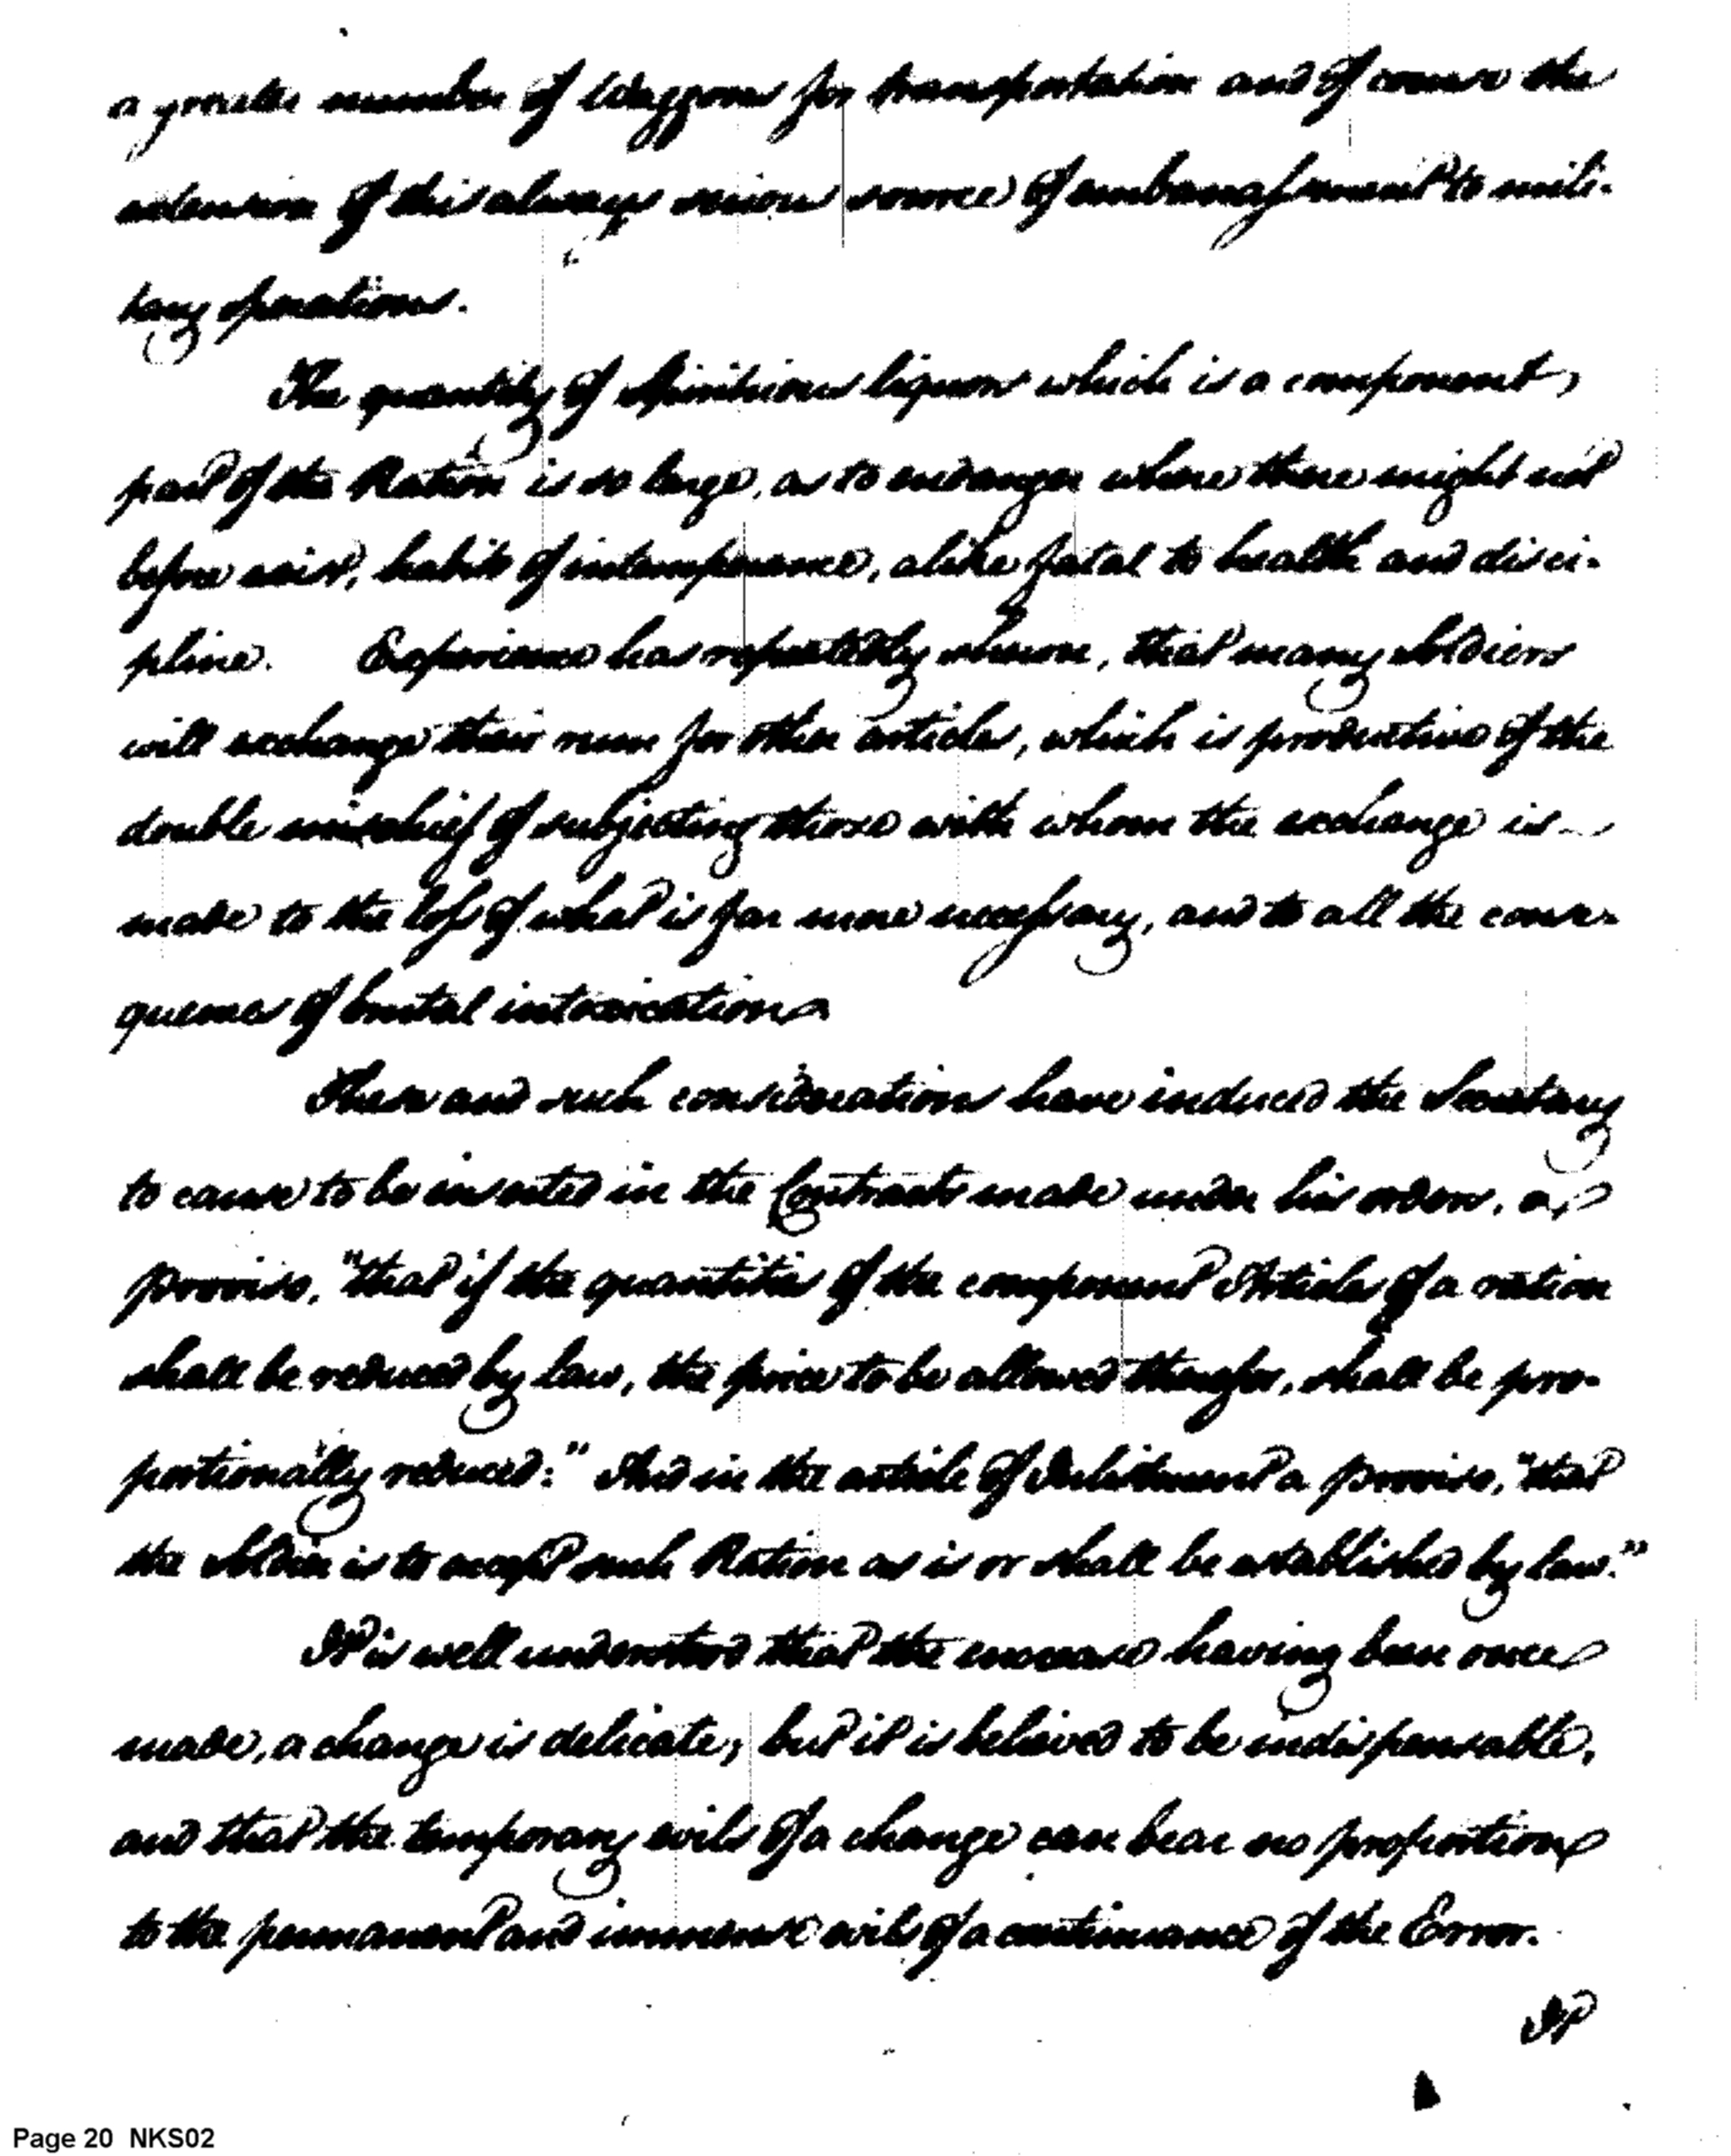 a greater number of Waggons for transportation and of course the
extension of this always serious source of embarrassment to mili-
tary operations.
The quantity of spirituous liquors which is a component
part of the Ration is so large, as to endanger where there might not
before exist, habits of intemperance, alike fatal to health and disci-
pline. Experience has repeatedly shewn, that many soldiers
will exchange their rum for other articles, which is productive of the
double mischief of subjecting those with whom the exchange is
made to the loss of what is far more necessary, and to all the conse-
quences of brutal intoxication
These and such considerations have induced the Secretary
to cause to be inserted in the Contracts made under his orders, a
proviso, "that if the quantities of the component Articles of a ration
shall be reduced by law, the price to be allowed therefor, shall be pro-
portionally reduced:" And in the article of Inlistment a proviso, "that
the soldier is to accept such Ration as is or shall be established by law."
It is well understood that the increase having been once
made, a change is delicate; but it is believed to be indispensable,
and that the temporary evils of a change can bear no proportion
to the permanent and immense evils of a continuance of the Error.
It
Page 20 NKS02